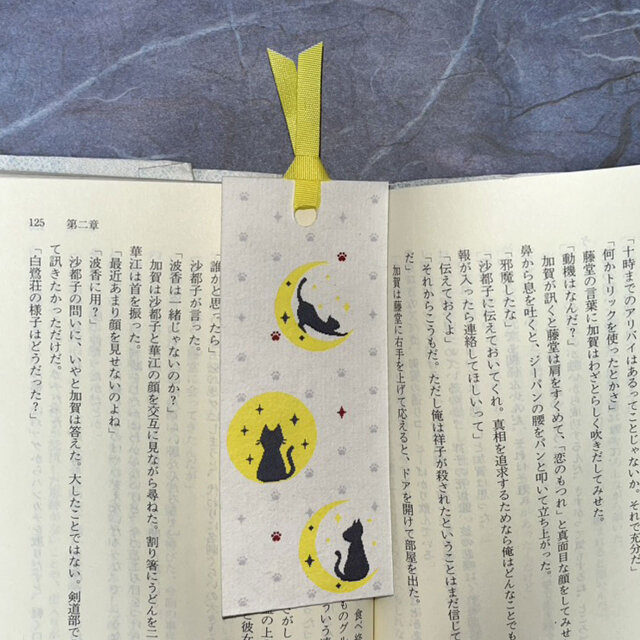 「十時までのアリバイはあるってことじゃないか。それで充分
「何かトリックを使ったとかさ」
藤堂の言葉に加賀はわざとらしく吹きだしてみせた。
「動機はなんだ?」
加賀が訊くと藤堂は肩をすくめて、「恋のもつれ」と真面目な顔をしてみ
鼻から息を吐くと、ジーパンの腰をパンと叩いて立ち上がった。
「邪魔したな」
「沙都子に伝えておいてくれ。真相を追求するためなら俺はどんなことでも
報が入ったら連絡してほしいって」
「伝えておくよ」
「それからこうもだ。ただし俺は祥子が殺されたということはまだ信じて
だ」
加賀は藤堂に右手を上げて応えると、ドアを開けて部屋を出た。
125 第二章
食べ終
ものグル
誰かと思ったら」
沙都子が言った。
「波香は一緒じゃないのか?」
加賀は沙都子と華江の顔を交互に見ながら尋ねた。割り箸にうどんを二
華江は首を振った。
「最近あまり顔を見せないのよね」
「波香に用?」
沙都子の問いに、いやと加賀は答えた。大したことではない。剣道部で
て訊きたかっただけだ。
「白鷺荘の様子はどうだった?」